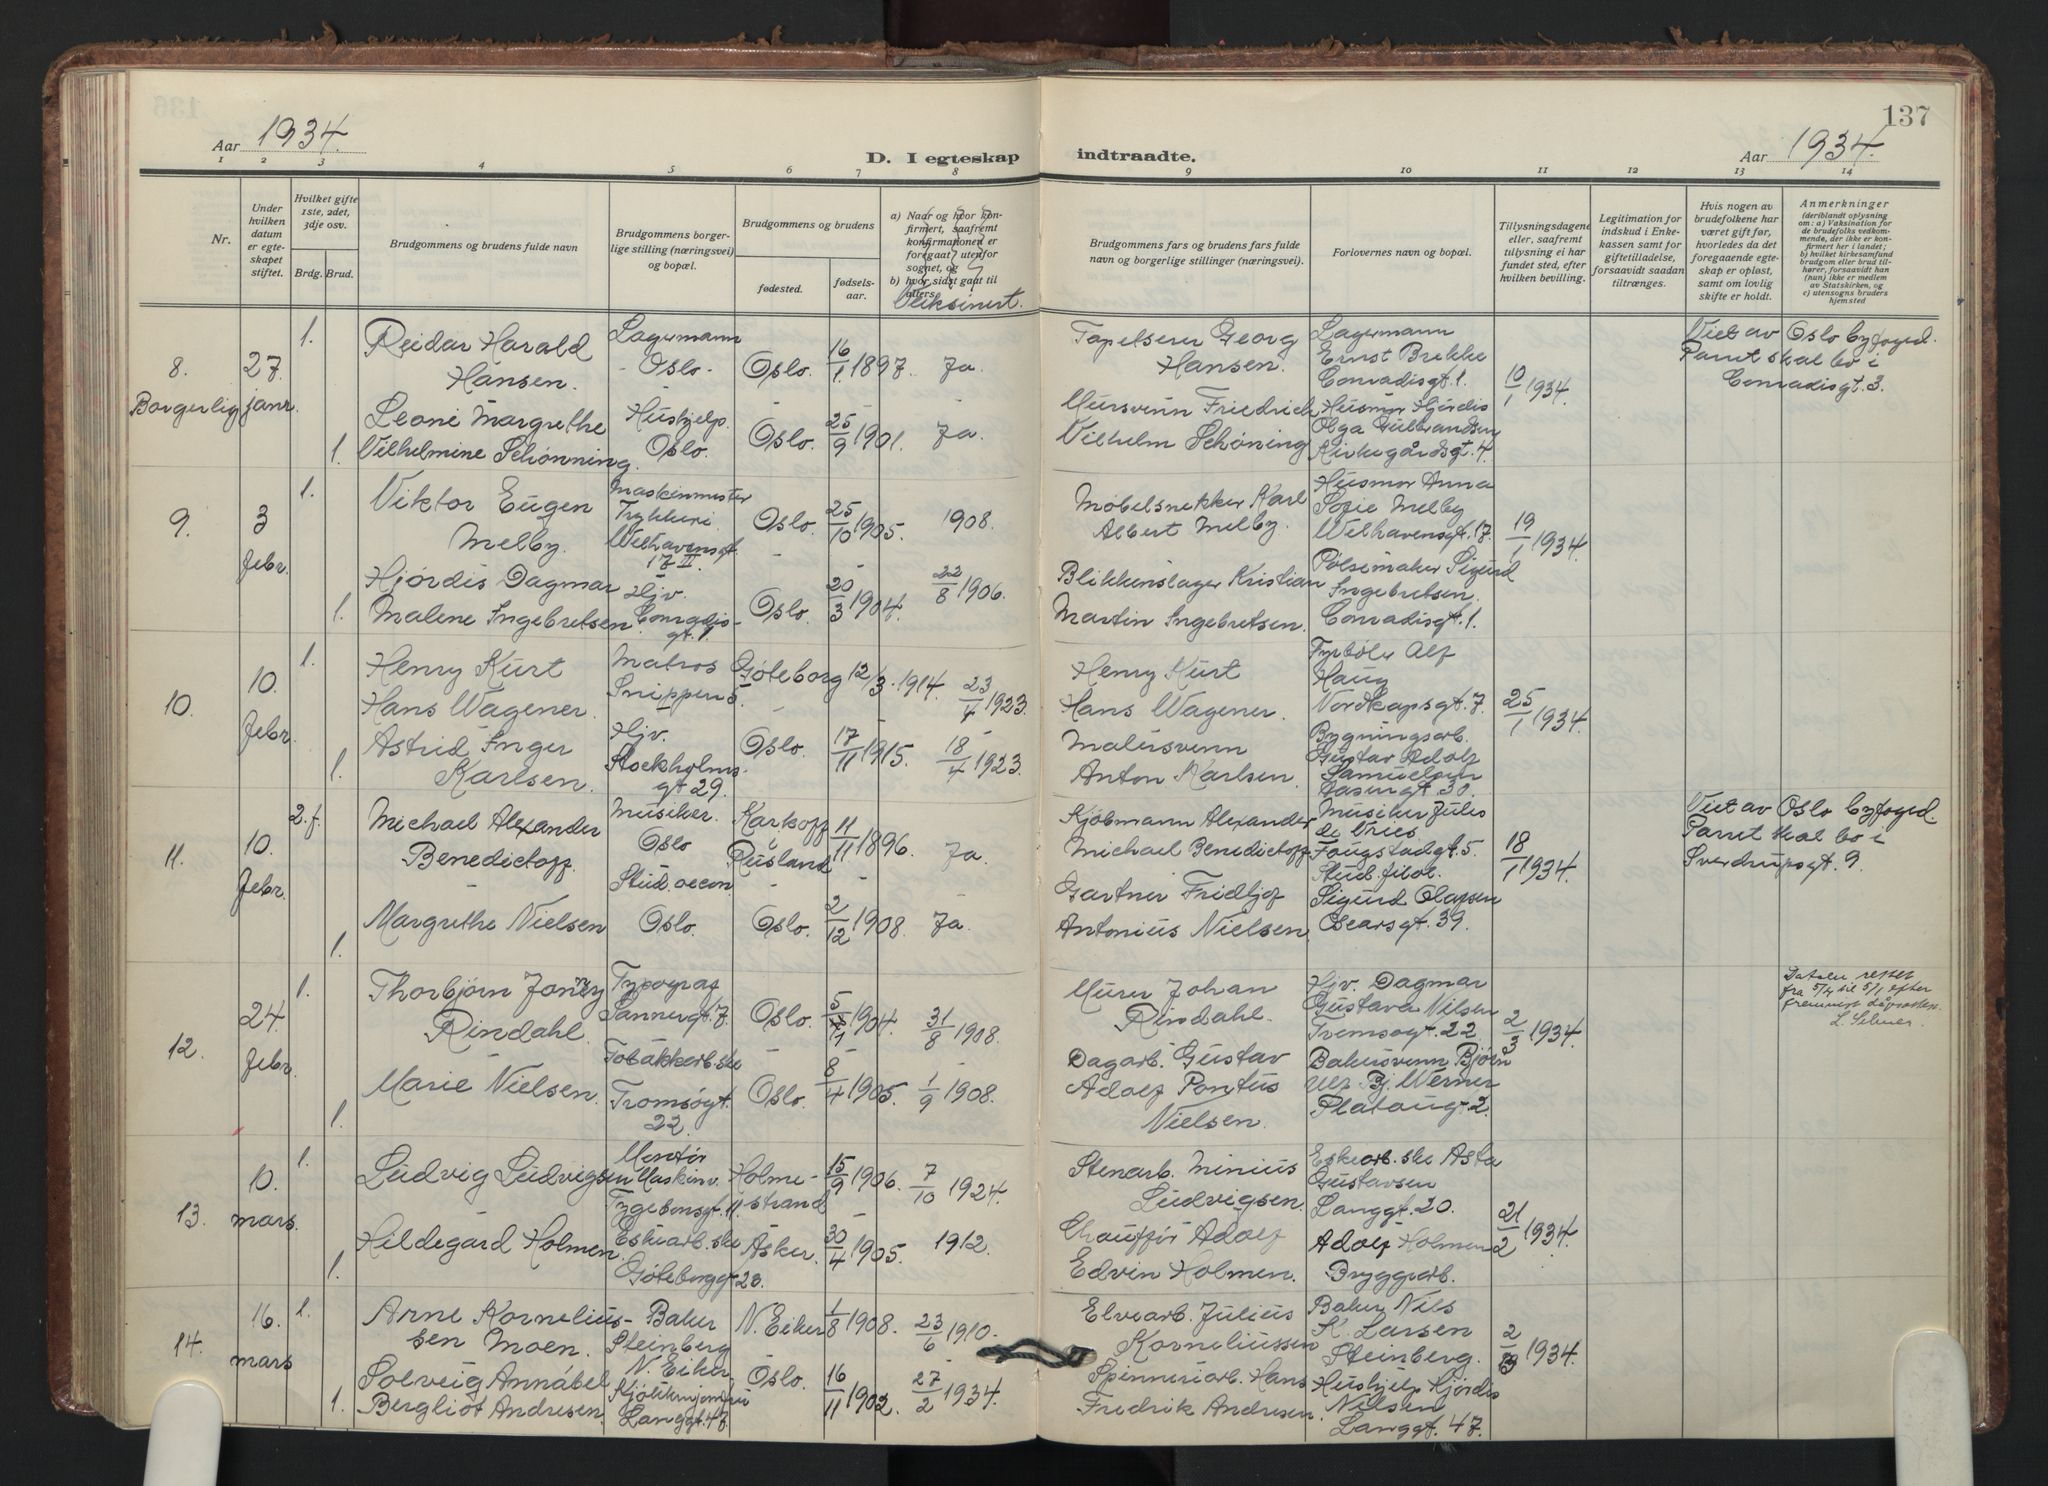 137
Aar 1934.
D. I egteskap indtraadte.
Aar 1934.
1 2 3 4 5 6 7 8 9 10 11 12 13 14
Nr.
Under hvilken datum er egteskapet stiftet.
Hvilket gifte 1ste, 2det, 3dje osv.
Brdg. Brud.
Brudgommens og brudens fulde navn
Brudgommens borgerlige stilling (næringsvei) og bopæl.
Brudgommens og brudens
fødested.
fødselsaar.
a) Naar og hvor konfirmert, saafremt konfirmationen er foregaat utenfor sognet, og
b) hvor sidst gaat til alters.
Vaksinert.
Brudgommens fars og brudens fars fulde navn og borgerlige stillinger (næringsvei).
Forlovernes navn og bopæl.
Tillysningsdagene eller, saafremt tillysning ei har fundet sted, efter hvilken bevilling.
Legitimation for indskud i Enkekassen samt for giftetilladelse, forsaavidt saadan tiltrænges.
Hvis nogen av brudefolkene har været gift før, hvorledes da det foregaaende egteskap er opløst, samt om lovlig skifte er holdt.
Anmerkninger
(deriblandt oplysning om: a) Vaksination for de brudefolks vedkommende, der ikke er konfirmert her i landet; b) hvilket kirkesamfund brudgom eller brud tilhører, forsaavidt han (hun) ikke er medlem av Statskirken, og c) utensogns bruders hjemsted
8. Borgerlig
27. janr.
1.
Reidar Harald Hansen.
Lagermann - Oslo -
Oslo. 16/1 1897. Ja.
Tapetserer Georg Hansen.
Lagermann Ernst Brekke Conradisgt. 1.
10/1 1934.
Viet av Oslo byfoged. Parret skal bo i Conradisgt. 3.
1.
Leoni Margrethe Vilhelmine Schønning.
Hushjelp. Oslo.
Oslo. 25/9 1901. Ja.
Mursvenn Friedrich Vilhelm Schøning
Husmor Hjørdis Olga Gulbrandsen Kirkegårdsgt. 4.
9.
3 febr.
1.
Viktor Eugen Melby.
Maskinmester Trykkeri Welhavensgt. 17 II.
Oslo. 25/10 1905. 1908.
Møbelsnekker Karl Albert Melby.
Husmor Anna Sofie Melby Welhavensgt. 17.
19/1 1934.
1.
Hjørdis Dagmar Malene Ingebretsen.
Hjv. Conradisgt. 1
Oslo. 20/3 1904. 22/8 1906.
Blikkenslager Kristian Martin Ingebretsen.
Pølsemaker Sigurd Ingebretsen. Conradisgt. 1.
10.
10. febr.
1.
Henry Kurt Hans Wagener.
Matros Snippen 5.
Göteborg 12/3 1914. 23/4 1923.
Henry Kurt Hans Wagener.
Fyrbøter Alf Haug Nordkapsgt. 7.
25/1 1934.
1.
Astrid Inger Karlsen.
Hjv. Stockholmsgt 29.
Oslo. 17/11 1915. 18/4 1923.
Malersvenn Anton Karlsen.
Bygningsarb. Gustav Adolf Samuelsen Aasengt. 30.
11.
10. febr.
2. f.
Michael Alexander Benedictoff.
Musiker. Oslo
Karkoff i Rusland 11/11 1896. Ja.
Kjøbmann Alexander Michael Benedictoff
Musiker Jules de Vries Fougstadgt. 5.
18/1 1934.
Viet av Oslo byfoged. Parret skal bo i Sverdrupsgt. 9
1.
Margrethe Nielsen
Stud. oecon. Oslo.
Oslo. 2/12 1908. Ja.
Gartner Fridtjof Antonius Nielsen.
Stud. filol. Sigurd Olafsen Oscarsgt. 39.
12.
24. febr.
1.
Thorbjørn Jonny Rindahl.
Typograf Sannergt. 7.
Oslo. 5/1 1904. 31/8 1908.
Murer Johan Rindahl.
Hjv. Dagmar Gustava Nilsen Tromsøgt. 22
2/3 1934.
Datoen rettet fra 5/4 til 5/1 efter fremvist dåpsattest.
1.
Marie Nielsen.
Tobakkarb.ske Tromsøgt. 22.
Oslo. 8/4 1905. 1/9 1908.
Dagarb. Gustav Adolf Pontus Nielsen.
Bakersvenn Bjørn Ulf Bj. Werner Plataugt. 2.
13.
10. mars.
1.
Ludvig Ludvigsen
Montør Maskinv. 11.
Holmestrand 15/9 1906. 7/10 1924.
Stenarb. Minius Ludvigsen.
Eskearb.ske Asta Gustavsen Langgt. 20.
21/2 1934.
1.
Hildegard Holmen.
Eskearb.ske Göteborggt 23.
Asker. 30/4 1905. 1912.
Chauffør Adolf Edvin Holmen.
Adolf Holmen Bryggarb.
14.
16. mars
1.
Arne Korneliussen Moen.
Baker Steinberg N. Eiker.
N. Eiker 1/8 1908. 23/6 1910.
Elvearb. Julius Korneliussen
Baker Nils K. Larsen Steinberg.
2/3 1934.
1.
Solveig Annabel Bergliot Andresen.
Langgt. 47.
Oslo. 16/11 1902. 27/2 1934.
Spinneriarb. Hans Fredrik Andresen.
Hushjelp Hjørdis Nilsen Langgt. 47.